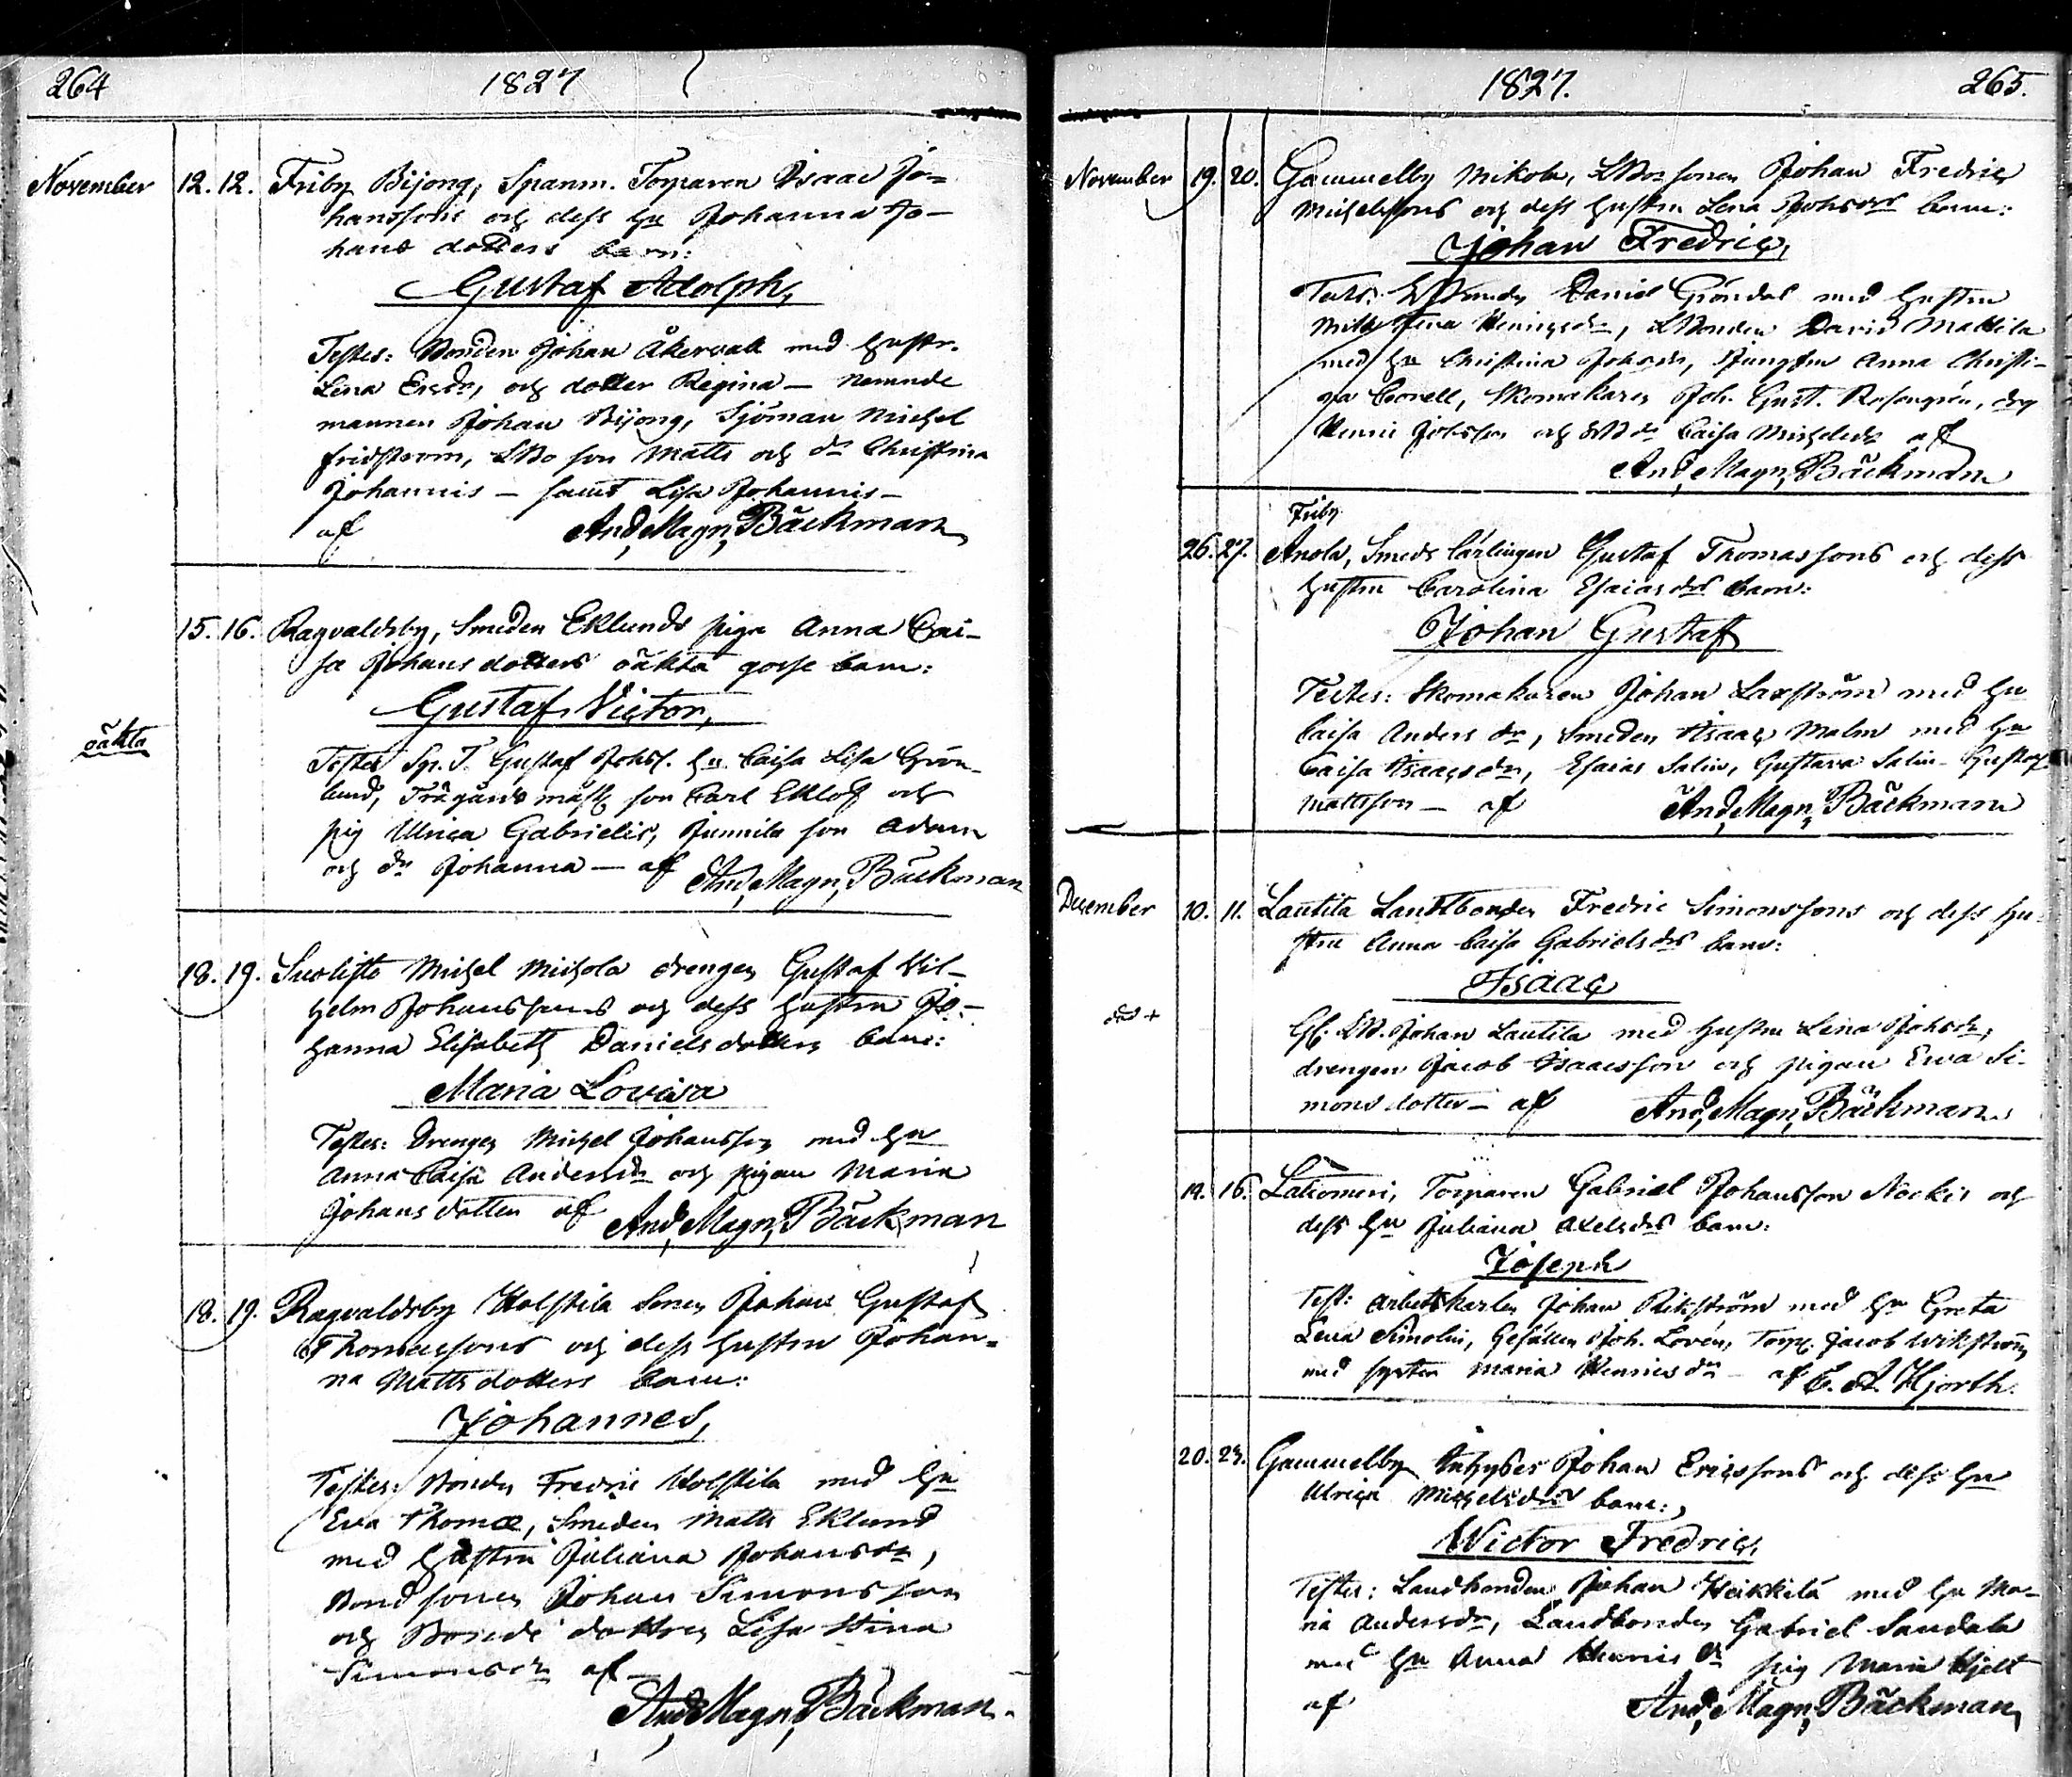 264
1827
November
12. 12. Friby Bijong, Spanm. Torparen Isaac Jo=
hanssons och dess hu Johanna Jo-
hans dotters barn:
Gustaf Adolph,
Testes: Bonden Johan Åkervall med hustr.
Lena Ersdr, och dotter Regina — Nemnde
mannen Johan Bijong, Sjöman Michel
Fridstrom, LBo son Matts och dr Christina
Johannis — samt Lisa Johannis —
af And. Magn. Bäckman
15. 16. Ragvaldsby, Smeden Eklunds piga Anna Cai-
sa Johans dotters oäkta gosse barn:
Gustaf Victor,
oäkta
Testes Sp. T. Gustaf Johss. hu Caisa Lisa Grön-
lund, Trägårds mäst son Carl Eklöf och
pig Ulrica Gabrielis, Junnila son Adam
och dr Johanna — af And. Magn. Bäckman
18. 19. Suolisto Michel Michola drengen Gustaf Wil-
helm Johanssons och dess hustru Jo-
hanna Elisabeth Daniels dotters barn:
Maria Lovisa
Testes: Drengen Michel Johansson med hu
Anna Caisa Andersdr och pigan Maria
Johans dotter af And. Magn. Bäckman
18. 19. Ragvaldsby Holstila Sonen Johan Gustaf
Thomassons och dess hustru Johan=
na Matts dotters barn:
Johannes,
Testes: Bonden Fredric Holstila med hu
Eva Thomæ, Smeden Matts Eklund
med hustru Juliana Johansdr,
Bondsonen Johan Simonsson
och Bonde dottren Lisa Stina
Simonsdr af
And. Magn. Bäckman
1827.
265.
November 19. 20. Gammelby Mikola, LBo sonen Johan Fredric
Michelssons och dess hustru Lena Johsdrs barn:
Johan Fredric,
Test: Daniel Gröndal med hustru
Henricsdr, LBonden David Mattila
med hu Christina Johsdr, Jungfru Anna Christi-
na Corell, Skomakaren Joh. Gust. Rosengrén, drg
Henric Johsson och Caisa Michelsdr af
And. Magn. Bäckman
Friby
26. 27. Anola, Smeds lärlingen Gustaf Thomassons och dess
hustru Carolina Esaiasdrs barn:
Johan Gustaf
Testes: Skomakaren Johan Laxström med hu
Caisa Anders dr, Smeden Isaac Malm med hu
Caisa Isaacsdr, Esaias Salin, Gustava Salin - Gustaf
Mattsson — af And. Magn. Bäckman
December 10. 11. Lautila Landtbonden Fredric Simonssons och dess hu
stru Anna Caisa Gabrielsdrs barn:
Isaac
död +
Johan Lautila med hustru Lena Johsdr,
drengen Jacob Isaacsson och pigan Eva Si-
mons dotter — af And. Magn. Bäckman
14. 16. Latiomeri, Torparen Gabriel Johansson Nockis och
dess hu Juliana Axelsdrs barn:
Joseph
Test: Arbetskarlen Johan Rikström med hu Greta
Lena Simolin, Gesällen Joh. Lovén, Torp. Jacob Wikström
med syster Maria Henricsdr - af C. A. Hjorth.
20. 23. Gammelby Inhyses Johan Ericssons och dess hu
Ulrica Michelsdrs barn:
Wictor Fredric,
Testes: Landbonden Johan Heikkilä med hu Ma-
ria Andersdr, Landbonden Gabriel Sandala
med hu Anna Henricsdr pig Maria Hjelt
af And. Magn. Bäckman